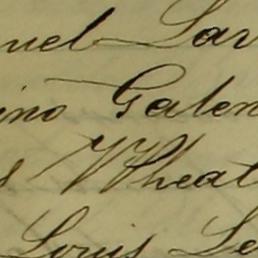 uel Lar
ino Galen
s Wheat
Louis Le